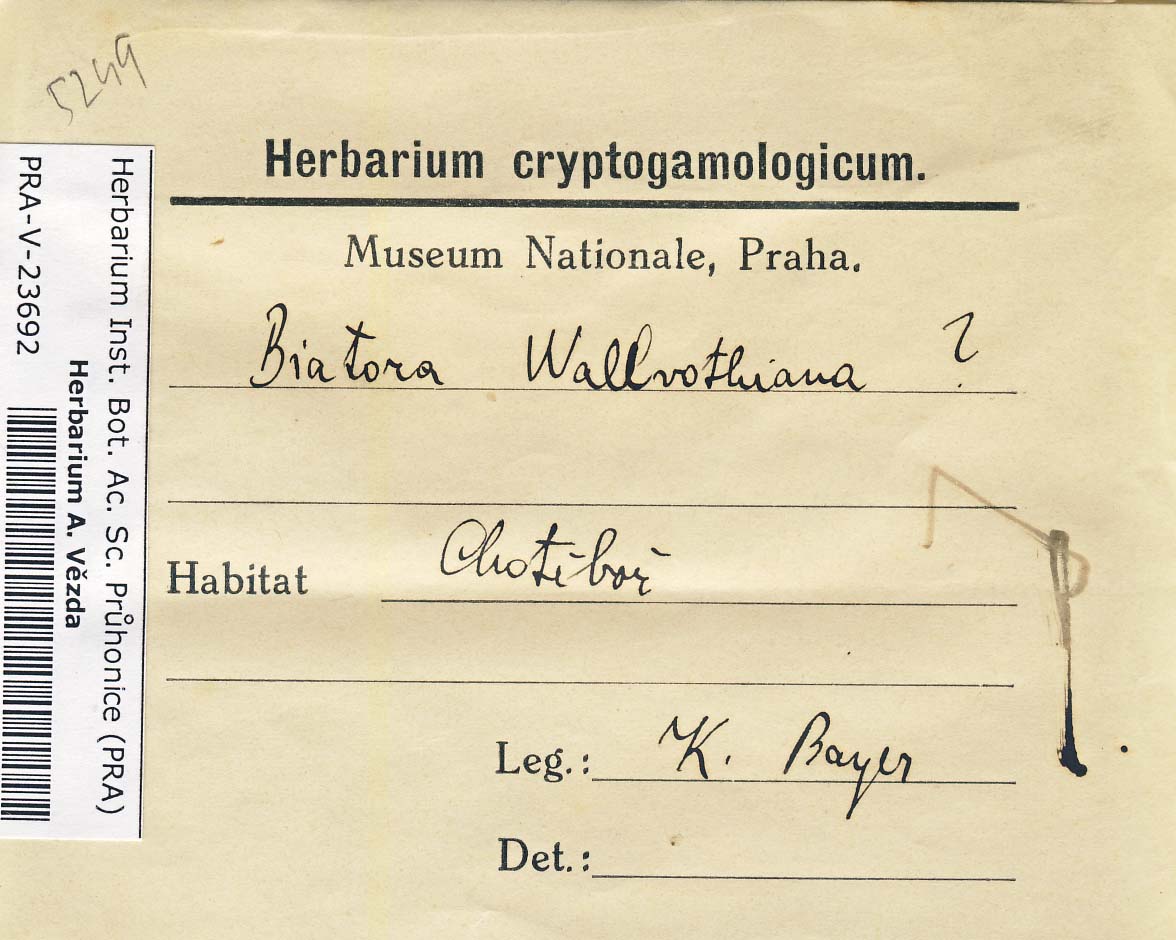 5249
Herbarium cryptogamologicum.
Museum Nationale, Praha.
Biatora Wallrothiana ?
Habitat Chotěboř
Leg.: K. Bayer
Det.:
Herbarium Inst. Bot. Ac. Sc. Průhonice (PRA)
Herbarium A. Vězda
PRA-V-23692